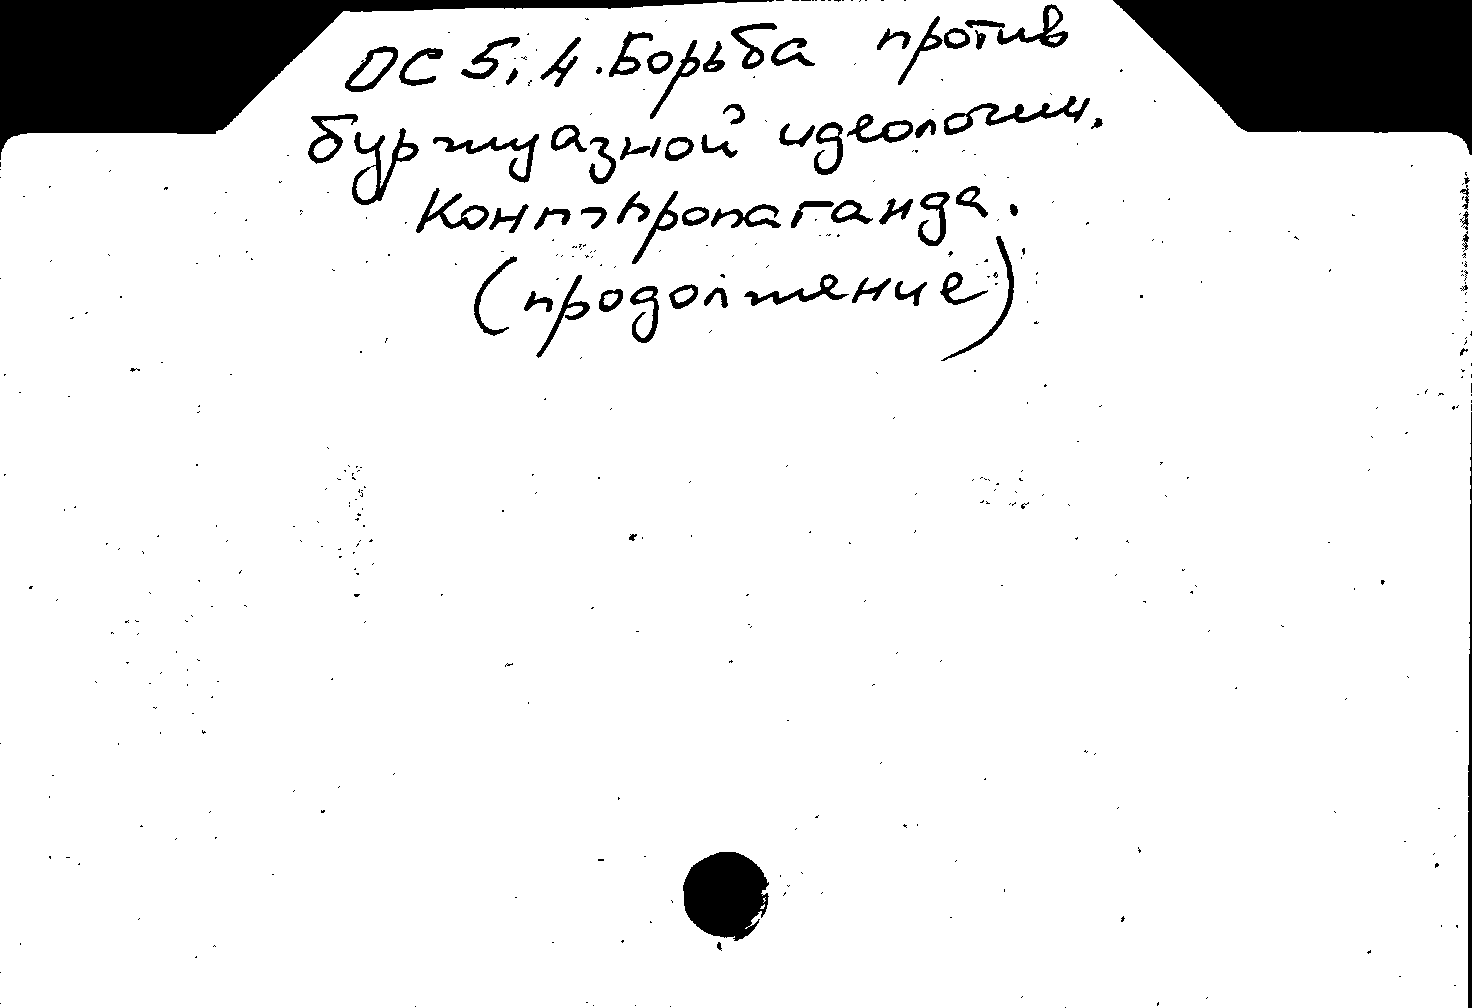 ОС 5.4. Борьба против
буржуазной идеологии.
Контрпропаганда.
(продолжение)